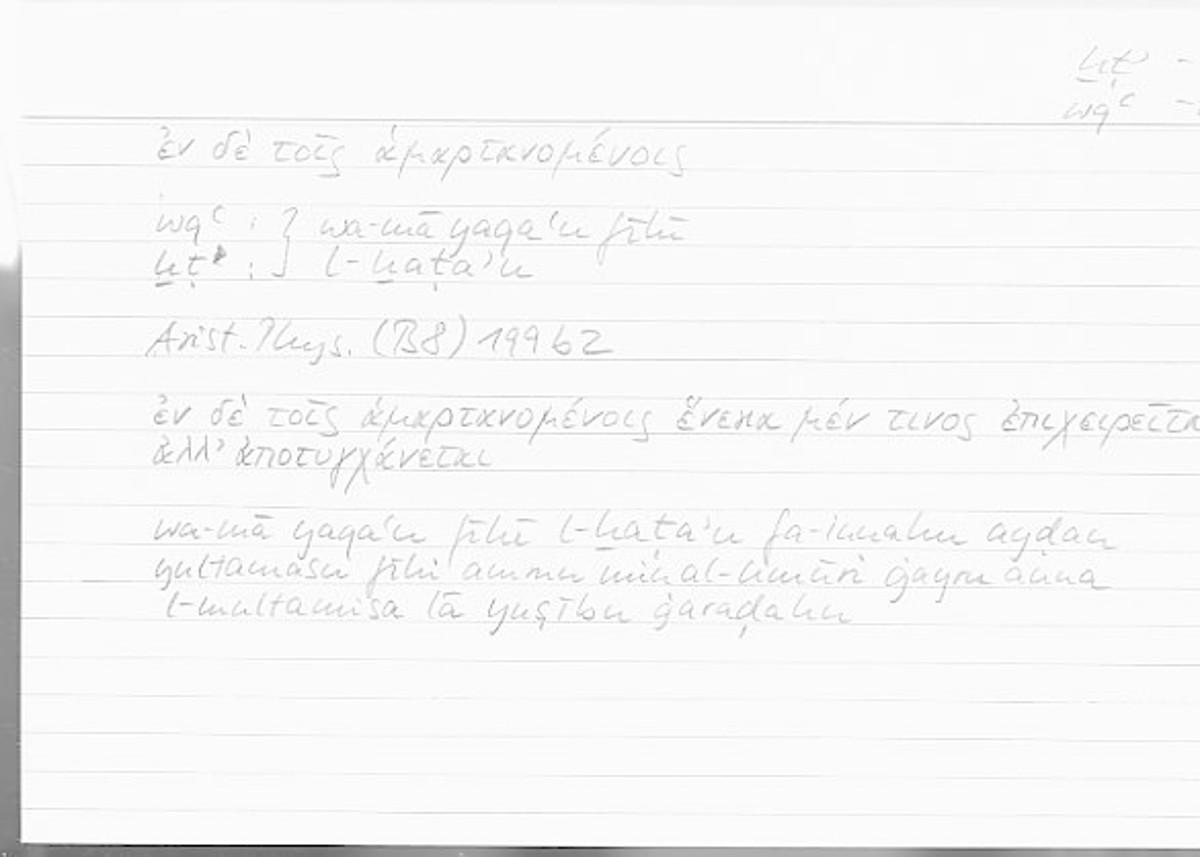 ḫṭʾ -
wqʿ -
ἐν δὲ τοῖς ἁμαρτανομένοις
wqʿ : } wa-mā yaqaʿu fīhi
ḫṭʾ : } l-ḫaṭaʾu
Arist. Phys. (B8) 199b2
ἐν δὲ τοῖς ἁμαρτανομένοις ἕνεκα μέν τινος ἐπιχειρεῖτα
ἀλλ’ ἀποτυγχάνεται
wa-mā yaqaʿu fīhi l-ḫaṭaʾu fa-innahu ayḍan
yultamasu fīhi ammu mina l-umūri ġayra anna
l-multamisa lā yuṣību ġaraḍahu